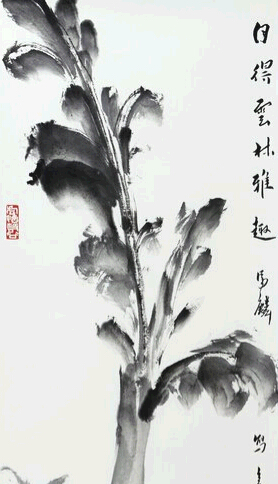 自得雲林雅趣馬麟寫